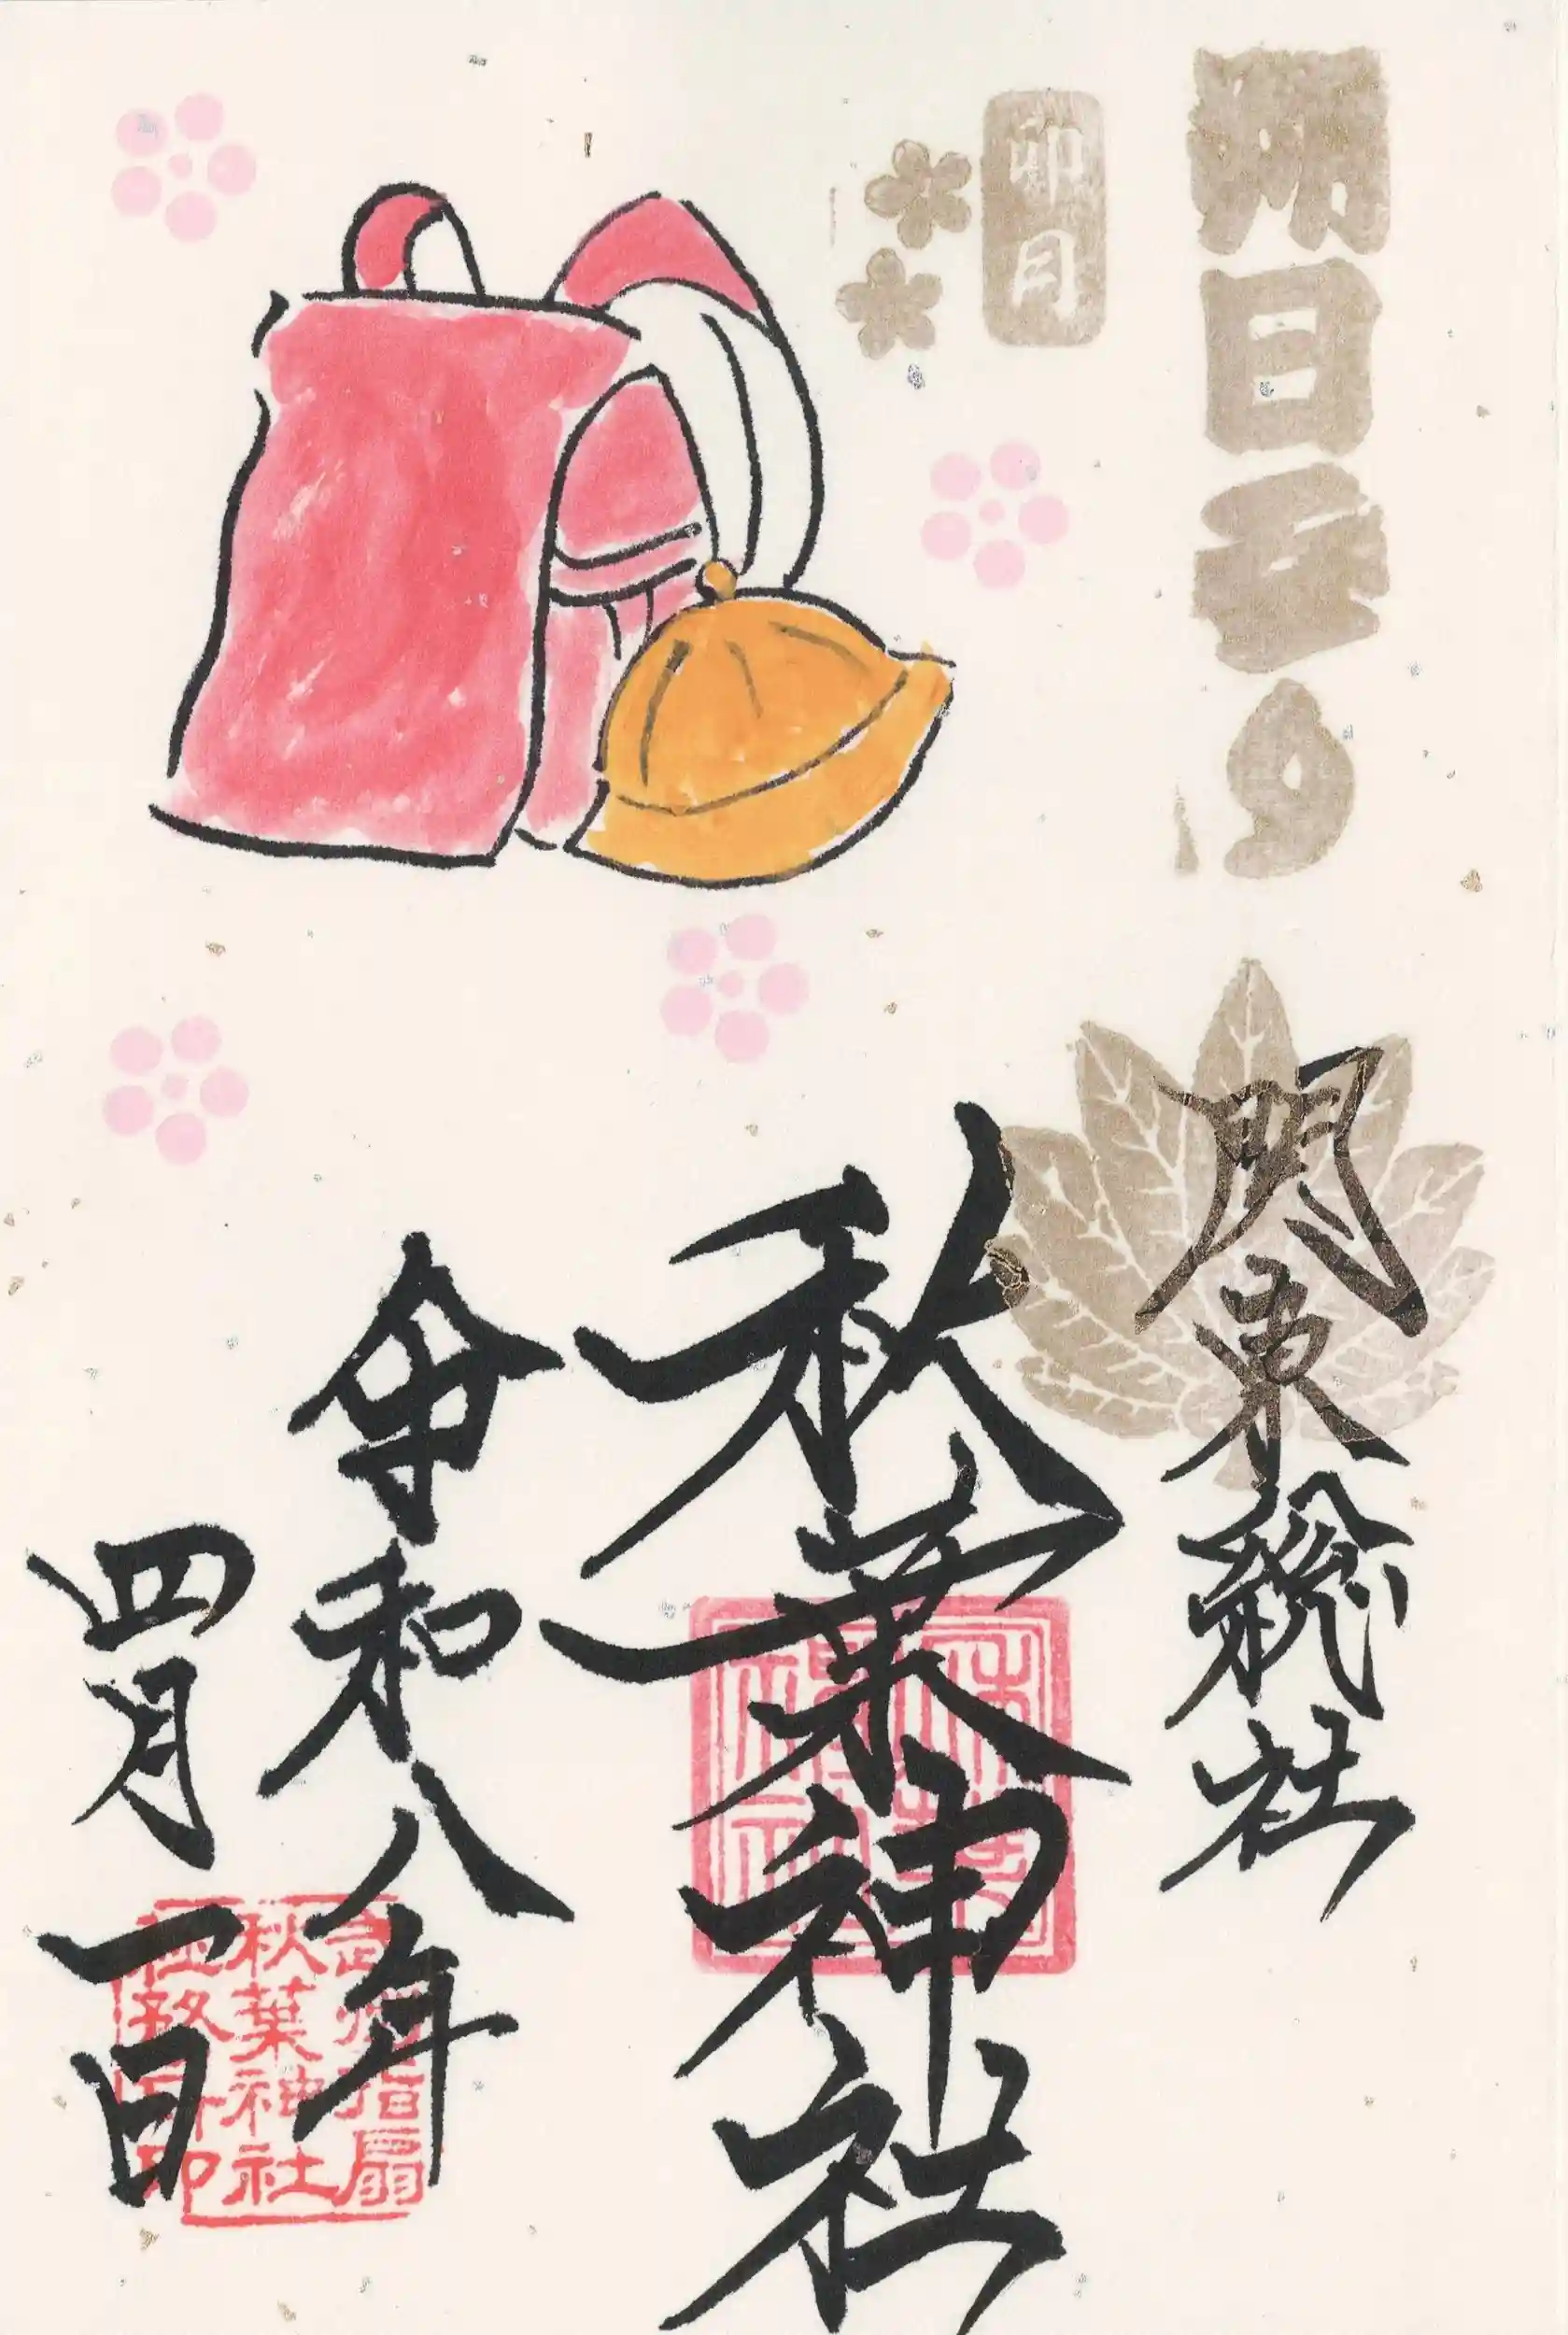 朔日まいり
卯月
関東総社
秋葉神社
令和八年
四月一日
武州指扇
秋葉神社
社務所印